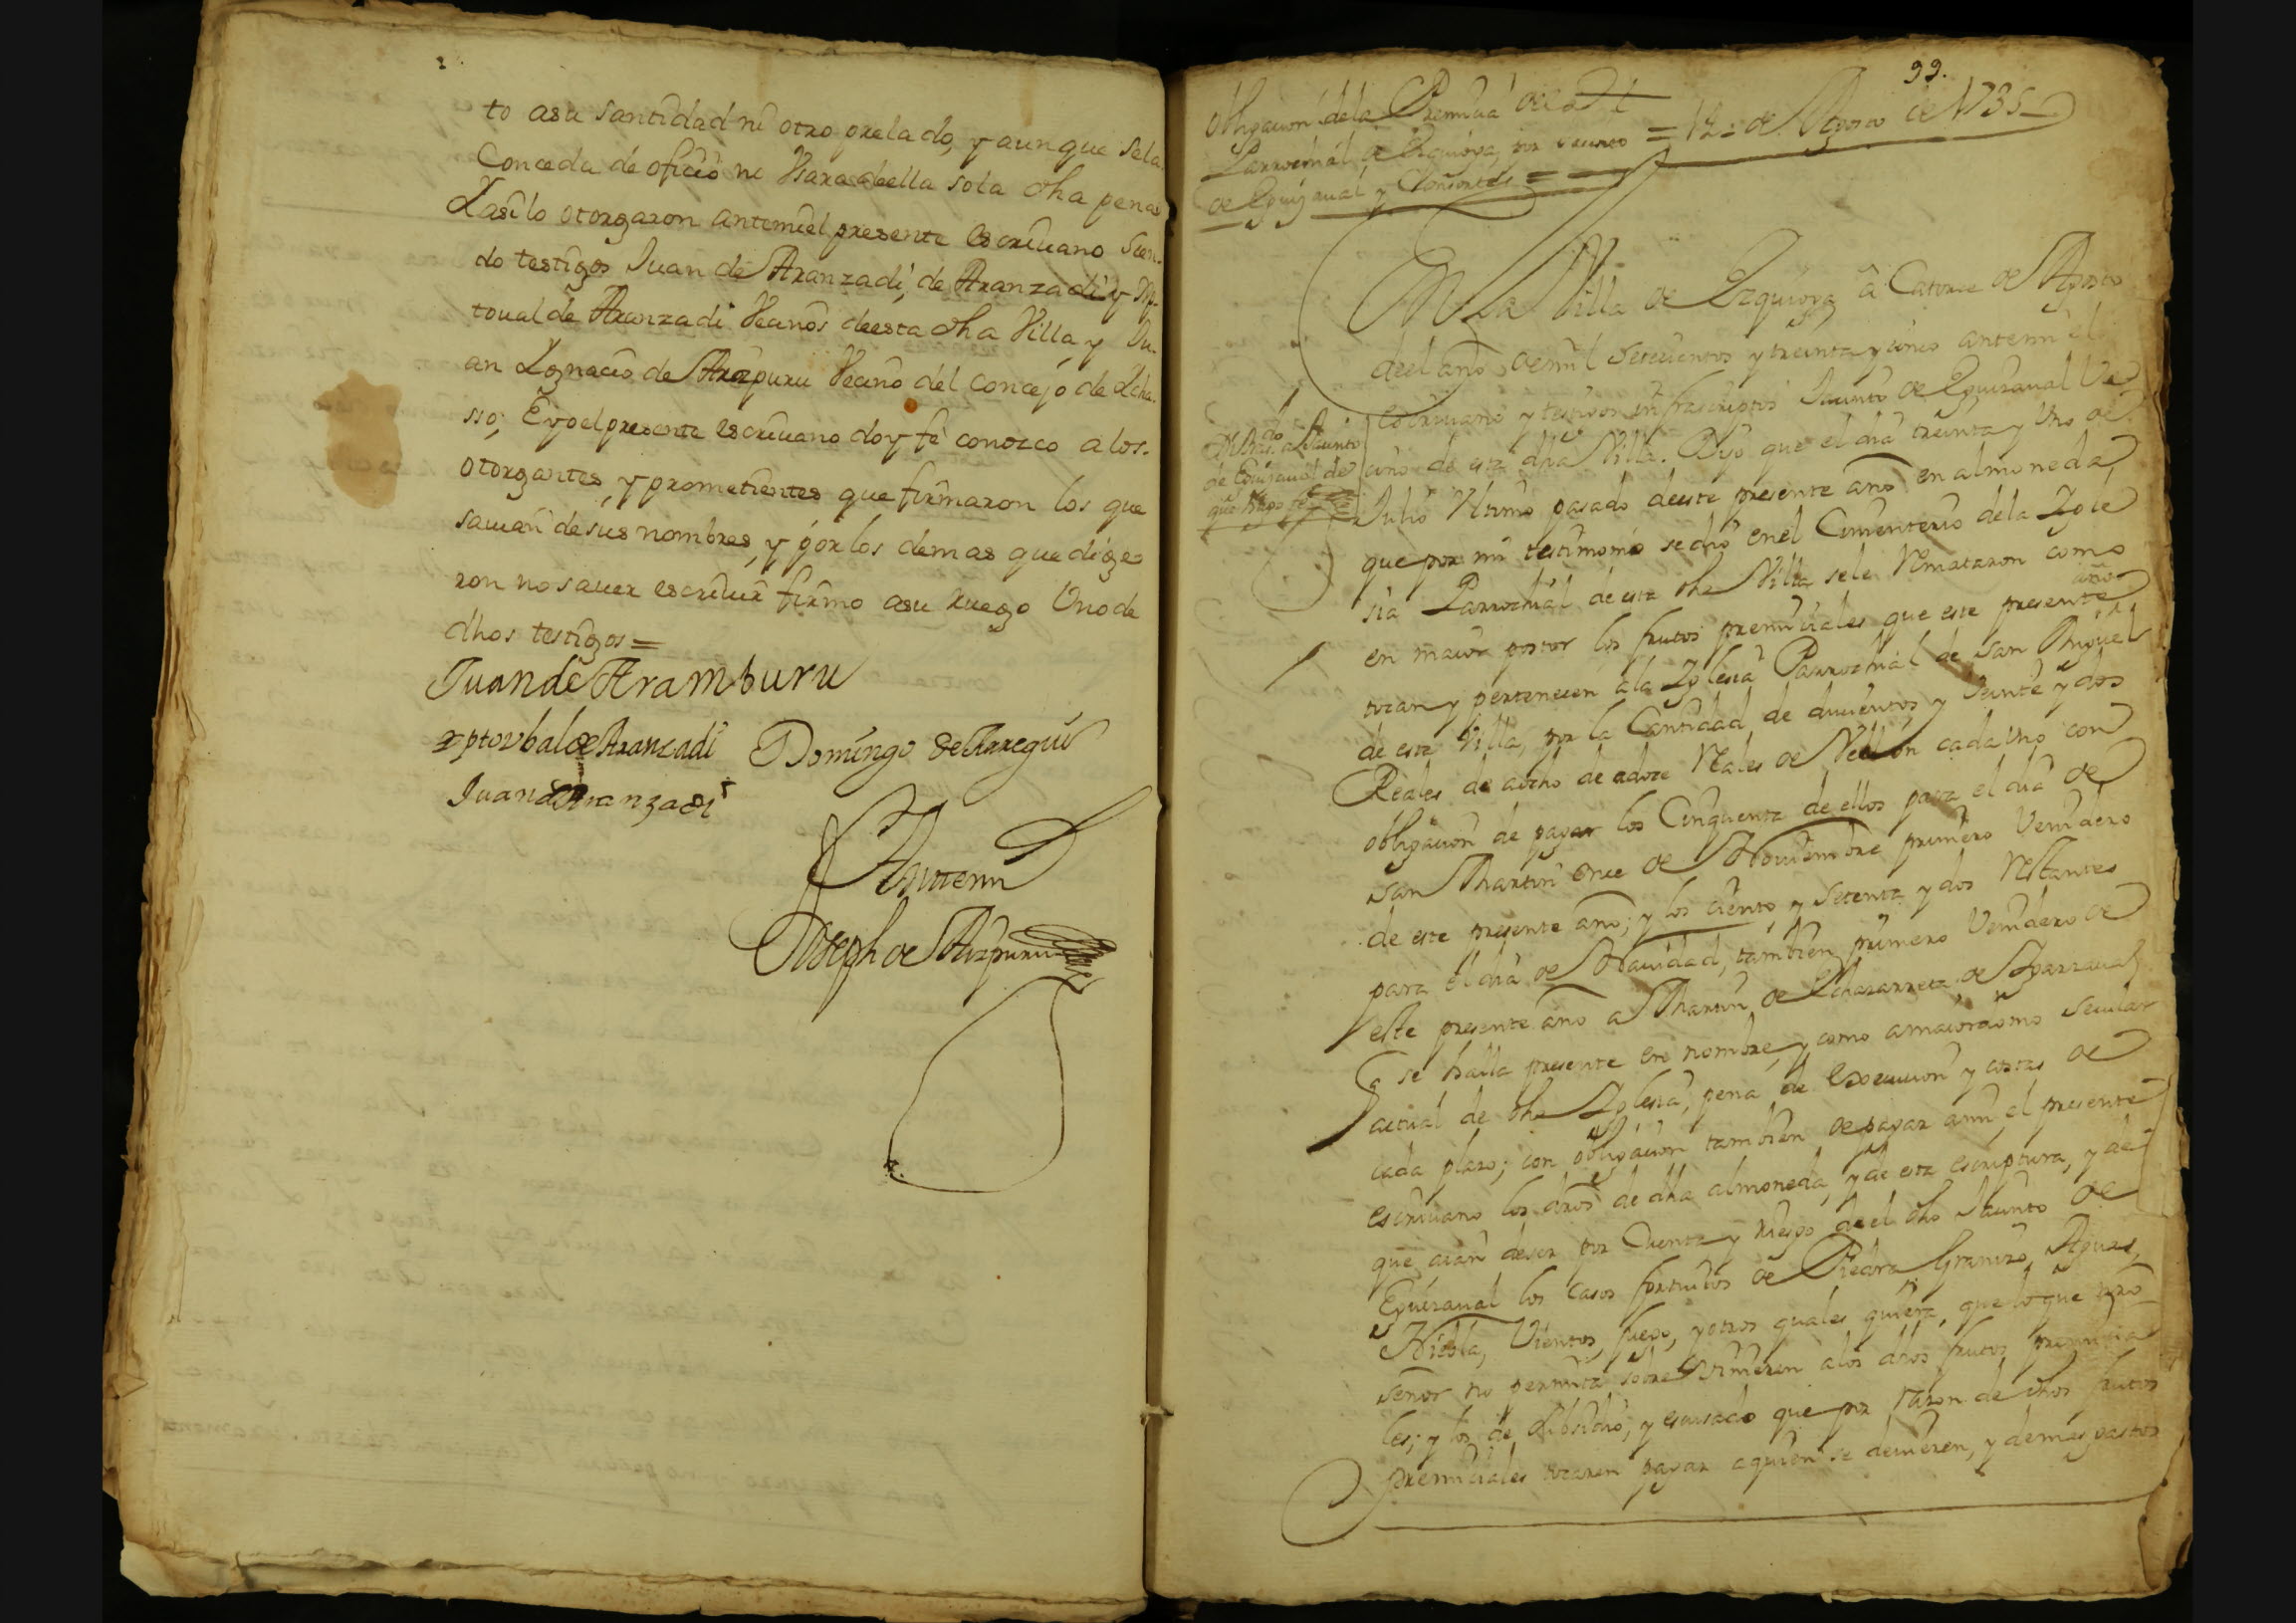 to asu santidad ni otro prelado, y aunque sela
Conceda de oficio no Usara deella sola dha pena
Y asi lo otorgaron antemi el presente escriuano sien-
do testigos Juan de Aranzadi, de Aranzadi y Xp-
toual de Aranzadi Vecinos deesta dha Villa, y Ju-
an Ygnacio de Aizpuru Vecino del Concejo de Ycha-
sso; E yo el presente escriuano doy fe conozco a los.
otorgantes, y prometientes que firmaron los que
sauian de sus nombres, y por los demas que dige-
ron no sauer escriuir firmo asu ruego Uno de
dhos testigos =
Juan de Aramburu
xptoval de Aranzadi Domingo de Jauregui
Juan de Aranzadi
Antemi
Joseph de Aizpuru
99.
Obligacion de la Premicia de la
Parrochial de Ezquioga, por Jacinto = 14 = de Agosto de 1735
de Eguizaual y Consortes =
En La Villa de Ezquioga â Catorce de Agosto
deel año de mil setecientos y treinta y cinco antemi el
escriuano y testigos infrascriptos Jacinto de Eguizaual Ve
cino de esta dha Villa. Dijo que el dia treinta y Uno de
a Jacinto
de Eguizaual de
que doy fe
Julio Vltimo pasado deeste presente año en almoneda
que por mi testimonio se hizo en el Cimenterio dela Ygle
sia Parrochial de esta dha Villa sele Remataron como
en maior postor los frutos premiciales que este presente año
tocan y pertenecen ala Yglesia Parrochial de San Miguel
de esta Villa, por la Cantidad de ducientos y Veinte y dos
Reales de aocho de adoze Reales de Vellon cada Uno con
obligacion de pagar los Cinquenta de ellos para el dia de
San Martin once de Nouiembre primero Venidero
de este presente año; y los ciento y setenta y dos Restantes
para el dia de Nauidad, tambien primero Venidero de
este presente año a Martin de Echazarreta, de Yparraal
q se halla presente en nombre, y como amaiordomo secular
actual de dha Yglesia, pena de Execucion y costas de
cada plazo; con obligacion tambien de pagar ami el presente
escriuano los dros de dha almoneda, y de esta escriptura, y de
que aian deser por Cuenta y riesgo deel dho Jacinto de
Eguizaual los casos fortuitos de Piedra Granizo, Aguas,
Niebla, Vientos, fuego, y otros quales quiera, que lo que nro
señor no permita sobre Vinieren alos dhos frutos premicia
les; y los de subsidio, y escusado que por razon de dhos frutos
premiciales tocaren pagar aquien se deuieren, y demas gastos